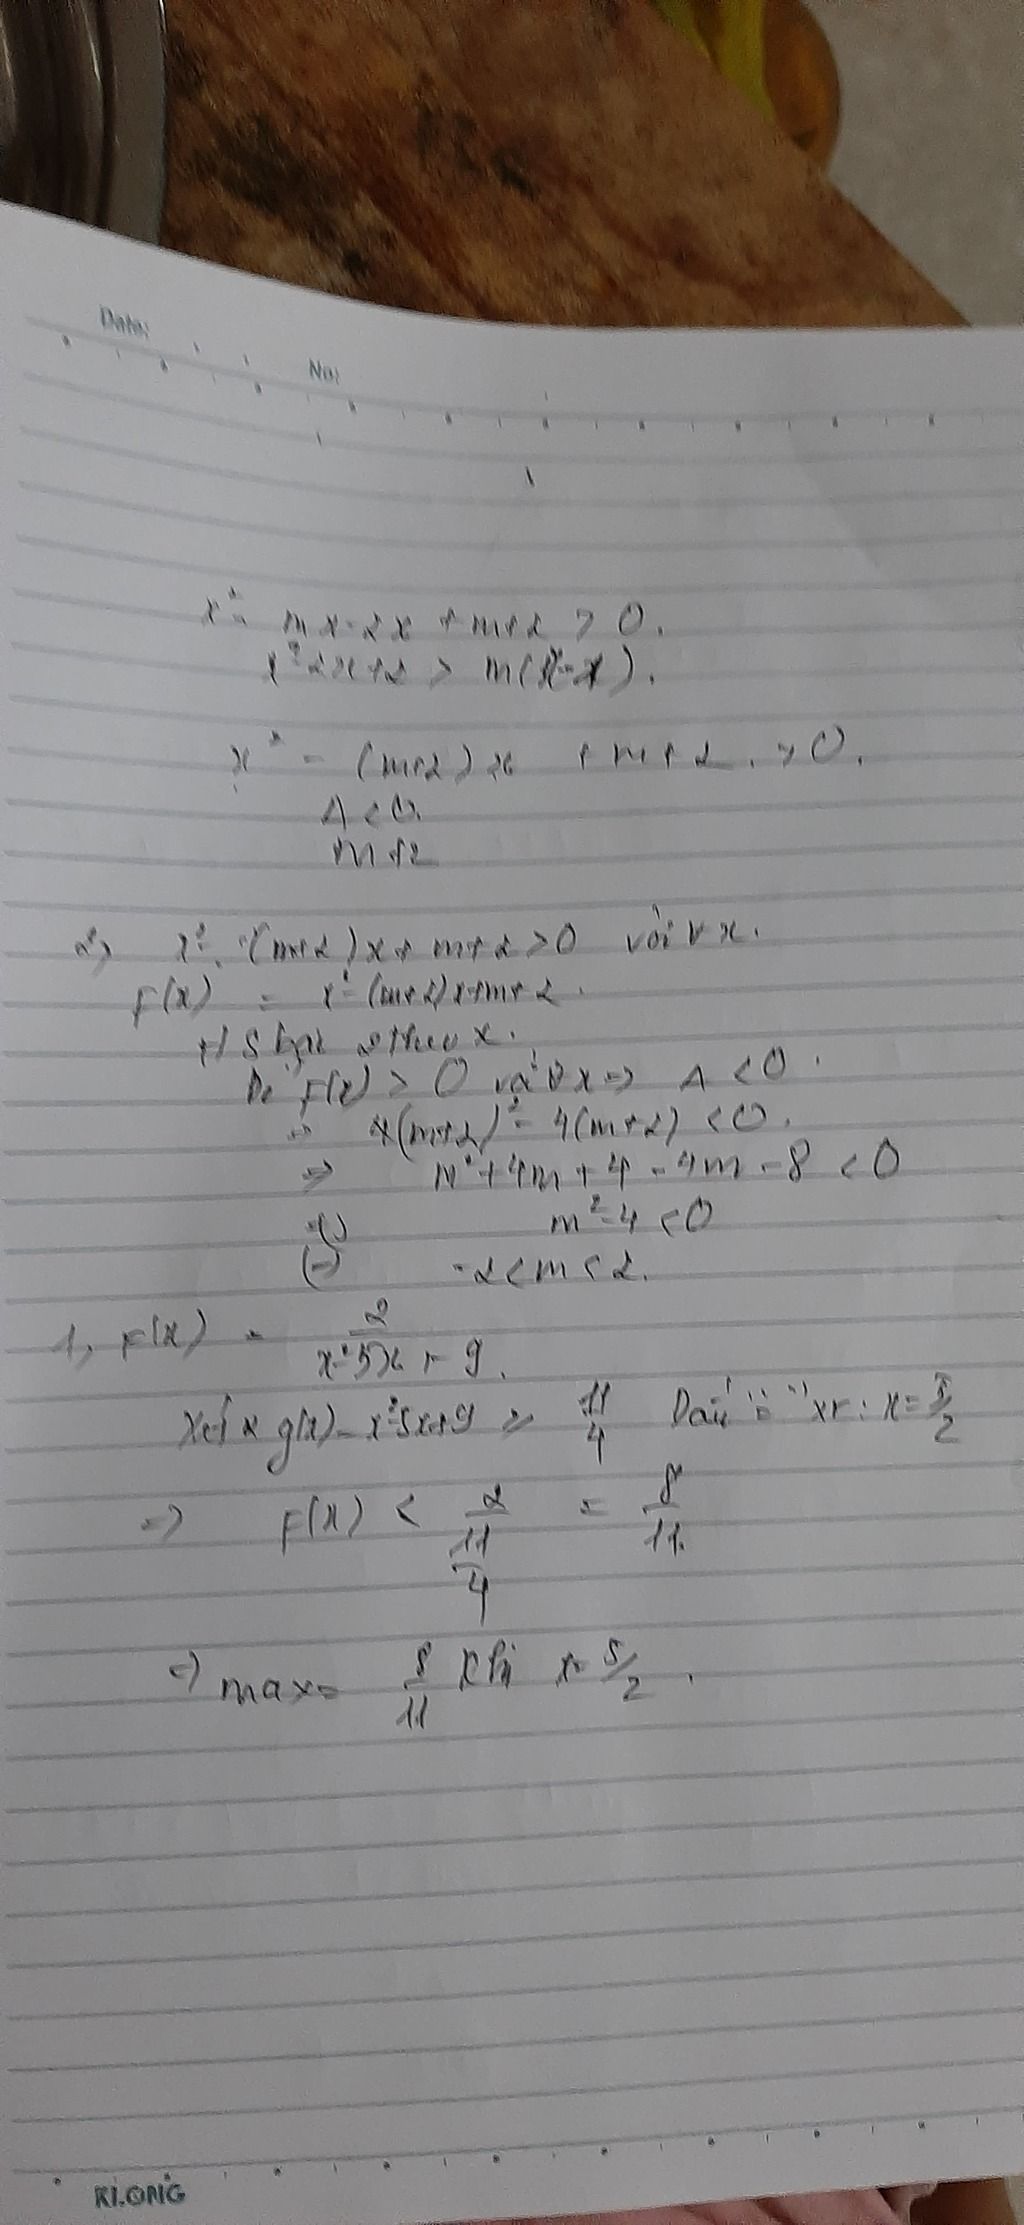 Date:
No:
x² - mx - 2x + m+2 > 0.
x² - 2x+2 > m(x-1).
x² - (m+2)x + m+2 > 0.
Δ < 0.
m+2
2, x² - (m+2)x + m+2 > 0 với ∀x.
F(x) = x² - (m+2)x+m+2.
x.
Để F(x) > 0 với ∀x => Δ < 0.
=> (m+2)² - 4(m+2) < 0.
=> m² + 4m + 4 - 4m - 8 < 0
(=) m² - 4 < 0
(=) -2 < m < 2.
1, F(x) = 2/(x² - 5x + 9).
Xét g(x) = x² - 5x+9 ≥ 11/4 Dấu "=" xr: x = 5/2
=> F(x) < 2/(11/4) = 8/11.
=> max = 8/11 khi x = 5/2.
KLONG